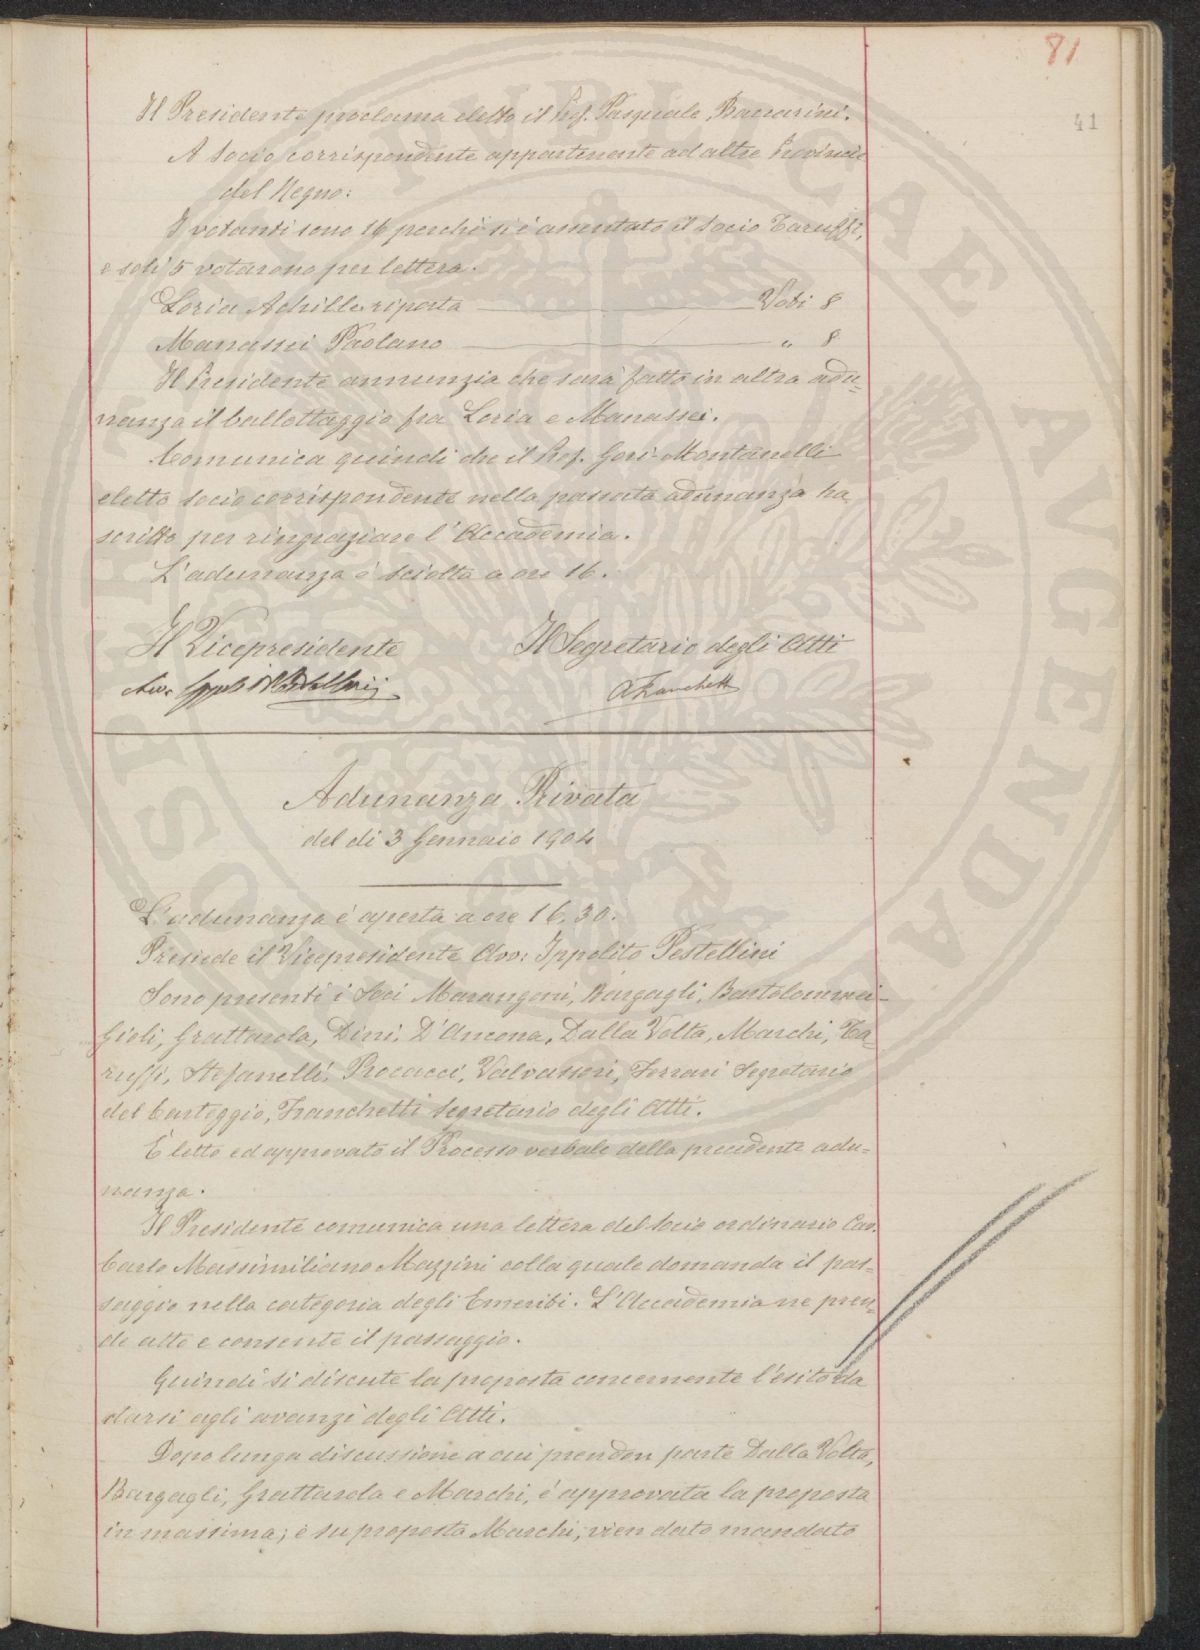 81
41
Il Presidente proclama eletto il Prof. Pasquale Baccarini.
A Socio corrispondente appartenente ad altre Provincie
del Regno:
I votanti sono 16 perchè si è assentato il Socio Taruffi,
e soli 5 votarono per lettera.
Loria Achille riporta Voti 8
Manassei Paolano " 8
Il Presidente annunzia che sarà fatto in altra adu=
nanza il ballottaggio fra Loria e Manassei.
Comunica quindi che il Prof. Gori-Montanelli
eletto socio corrispondente nella passata adunanza ha
scritto per ringraziare l'Accademia.
L'adunanza è sciolta a ore 16.
Il Vicepresidente Il Segretario degli Atti
Avv. Ippolito Pestellini AFranchetti
Adunanza Privata
del dì 3 Gennaio 1904
L'adunanza è aperta a ore 16.30.
Presiede il Vicepresidente Avv: Ippolito Pestellini
Sono presenti i Soci Marangoni, Bargagli, Bartolommei-
Gioli, Grattarola, Dini, D'Ancona, Dalla Volta, Marchi, Ta=
ruffi, Stefanelli, Procacci, Valvassori, Ferrari Segretario
del Carteggio, Franchetti Segretario degli Atti.
È letto ed approvato il Processo verbale della precedente adu=
nanza.
Il Presidente comunica una lettera del Socio ordinario Cav.
Carlo Massimiliano Mazzini colla quale domanda il pas=
saggio nella categoria degli Emeriti. L'Accademia ne pren=
de atto e consente il passaggio.
Quindi si discute la proposta concernente l'esito da
darsi agli avanzi degli Atti.
Dopo lunga discussione a cui prendon parte Dalla Volta,
Bargagli, Grattarola e Marchi, è approvata la proposta
in massima; e su proposta Marchi, vien dato mandato